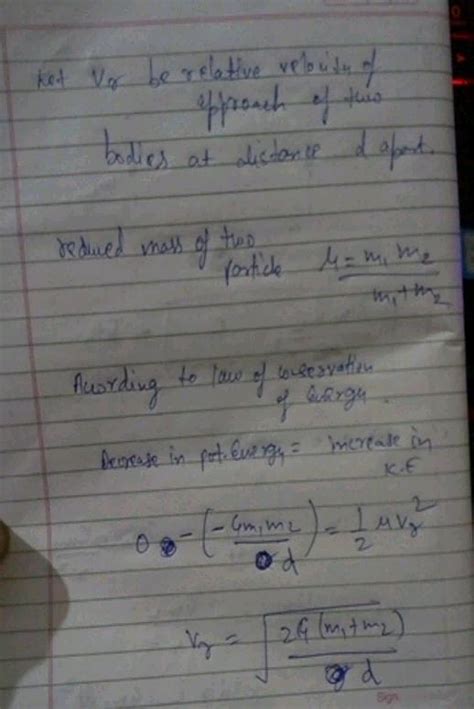 Let Vr be relative velocity of
approach of two
bodies at distance d apart.
reduced mass of two
particle μ = m₁ m₂
m₁+m₂
According to law of conservation
of energy.
Decrease in pot. Energy = increase in
K.E
0 - (-Gm₁m₂ / d) = 1/2 μVr²
Vr = √(2G(m₁+m₂) / d)
Sign